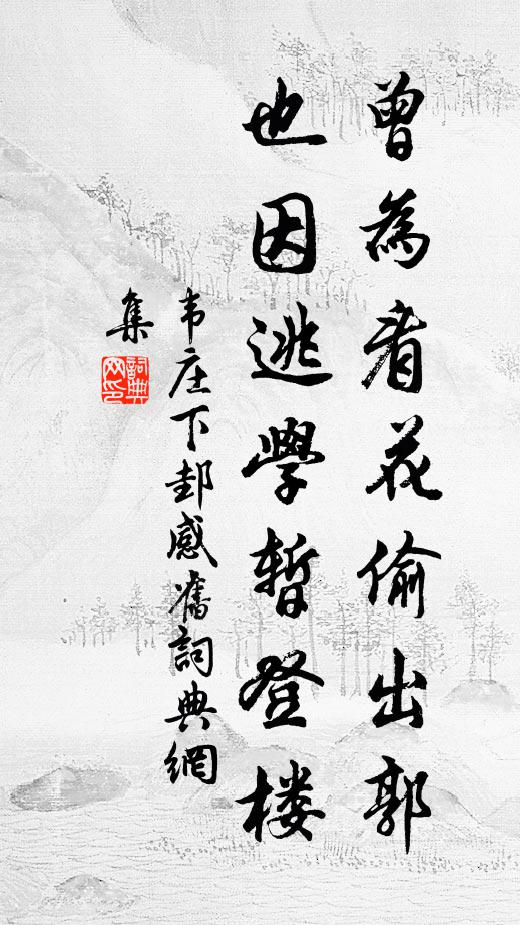 曾為看花偷出郭
也因逃學暫登楼
韦庄下邽感舊詞典網
集
詞典网印